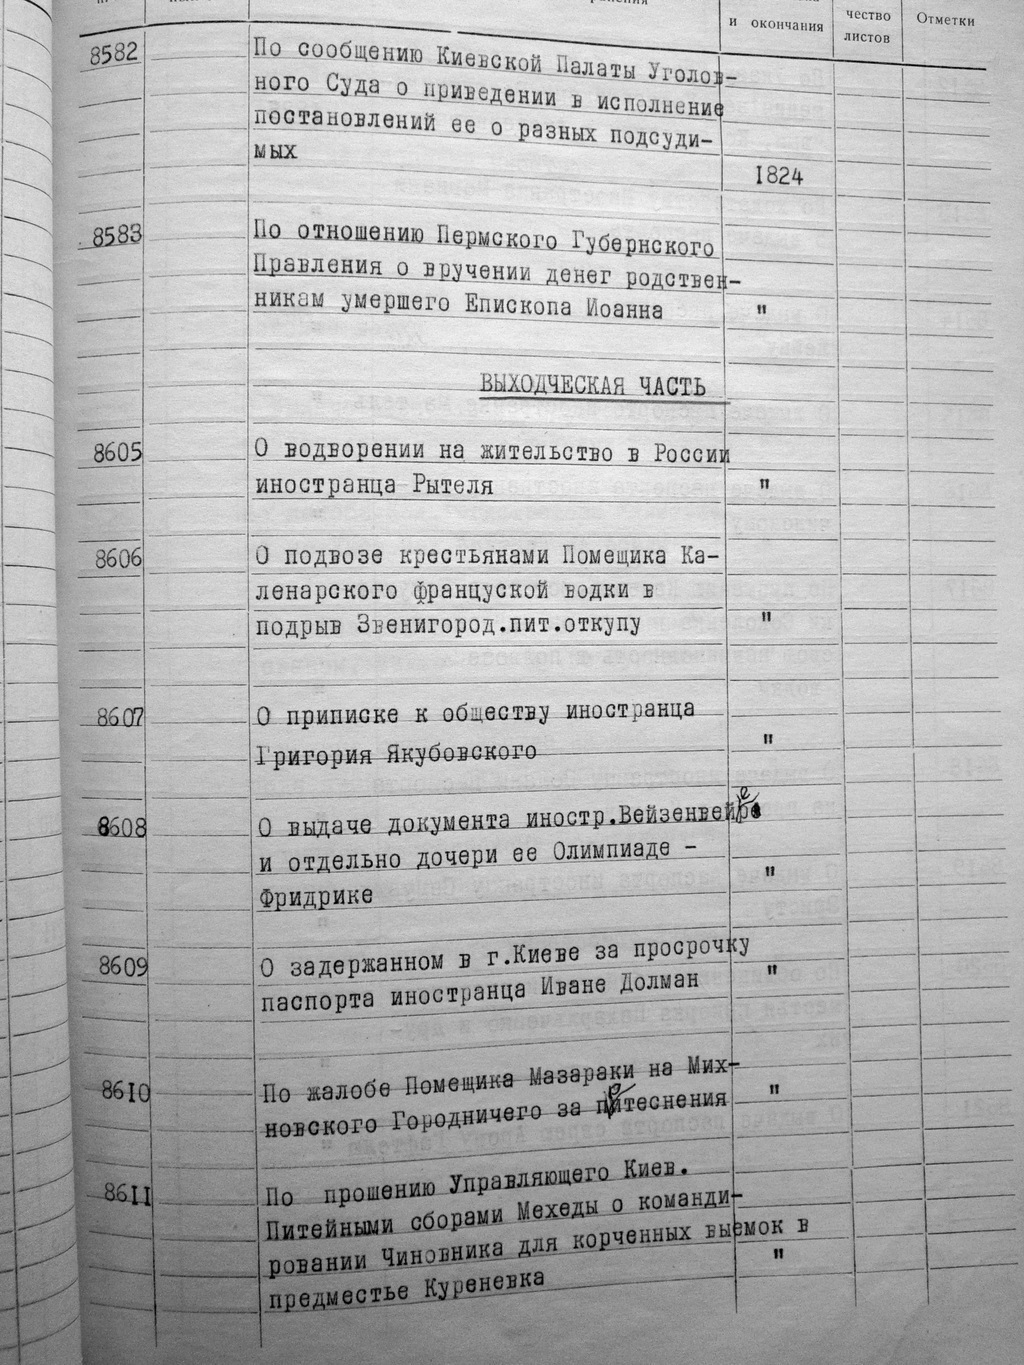 и окончания
чество
листов
Отметки
8582
По сообщению Киевской Палаты Уголов-
ного Суда о приведении в исполнение
постановлений ее о разных подсуди-
мых
1824
8583
По отношению Пермского Губернского
Правления о вручении денег родствен-
никам умершего Епископа Иоанна "
ВЫХОДЧЕСКАЯ ЧАСТЬ
8605
О водворении на жительство в России
иностранца Рытеля "
8606
О подвозе крестьянами Помещика Ка-
ленарского француской водки в
подрыв Звенигород.пит.откупу "
8607
О приписке к обществу иностранца
Григория Якубовского "
8608
О выдаче документа иностр.Вейзенвейре
и отдельно дочери ее Олимпиаде -
Фридрике "
8609
О задержанном в г.Киеве за просрочку
паспорта иностранца Иване Долман "
8610
По жалобе Помещика Мазараки на Мих-
новского Городничего за притеснения "
8611
По прошению Управляющего Киев.
Питейными сборами Мехеды о команди-
ровании Чиновника для корченных выемок в
предместье Куреневка "